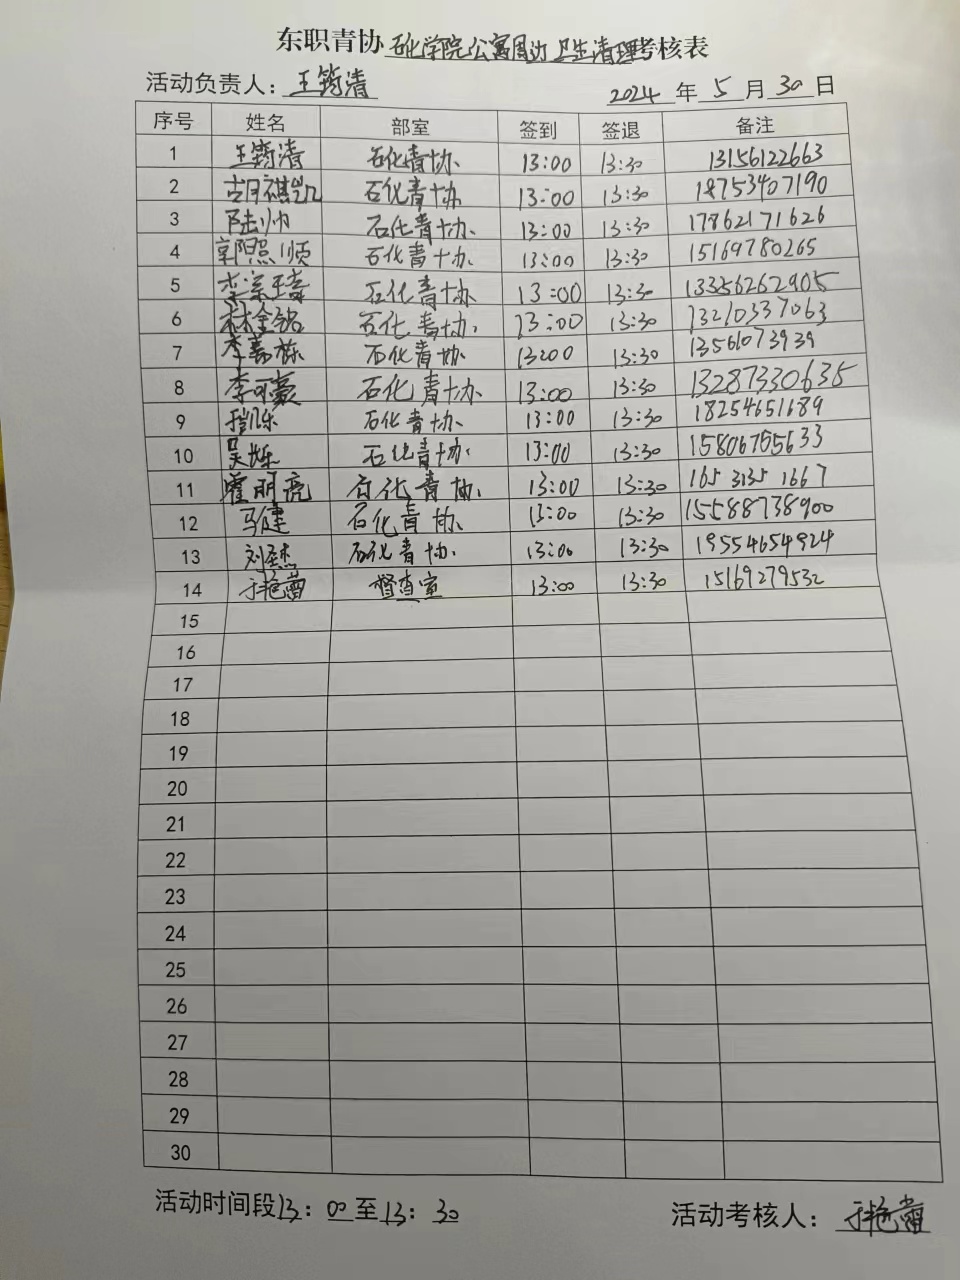 东职青协石化学院公寓周边卫生清理考核表
活动负责人：王筠清 2024年5月30日
序号 姓名 部室 签到 签退 备注
1 王筠清 石化青协 13:00 13:30 13156122663
2 胡祺凯 石化青协 13:00 13:30 18753407190
3 陆帅 石化青协 13:00 13:30 17862171626
4 郭照顺 石化青协 13:00 13:30 15169780265
5 李 石化青协 13:00 13:30 13356262905
6 林金铭 石化青协 13:00 13:30 13210337063
7 李嘉栋 石化青协 13:00 13:30 13561073939
8 李可豪 石化青协 13:00 13:30 13287330635
9 石化青协 13:00 13:30 18254651689
10 吴烁 石化青协 13:00 13:30 15806755633
11 霍明亮 石化青协 13:00 13:30 165 3135 1667
12 马健 石化青协 13:00 13:30 15588738900
13 刘圣杰 石化青协 13:00 13:30 19554654924
14 于艳蕾 督查室 13:00 13:30 15169279532
15
16
17
18
19
20
21
22
23
24
25
26
27
28
29
30
活动时间段13：00至13：30 活动考核人：于艳蕾